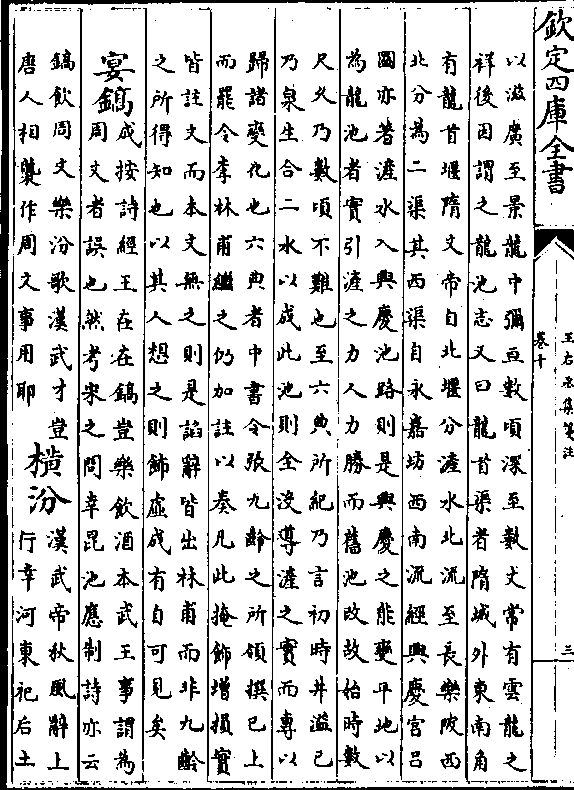 欽定四庫全書
王右丞集箋注
卷十
三
以滋廣至景龍中彌亘數頃深至數丈常有雲龍之
祥後因謂之龍池志又曰龍首渠者隋城外東南角
有龍首堰隋文帝自北堰分滻水北流至長樂陂西
北分為二渠其西渠自永嘉坊西南流經興慶宮呂
圖亦著滻水入興慶池路則是興慶之能變平地以
為龍池者實引滻之力人力勝而舊池改故始時數
尺久乃數頃不難也至六典所紀乃言初時井溢已
乃泉生合二水以成此池則全沒導滻之實而專以
歸諸變化也六典者中書令張九齡之所領撰已上
而罷令李林甫繼之仍加註以奏凡此掩飾增損實
皆註文而本文無之則是諂辭皆出林甫而非九齡
之所得知也以其人想之則飾虛成有自可見矣
宴鎬
成按詩經王在在鎬豈樂飲酒本武王事謂為
周文者誤也然考宋之問幸昆池應制詩亦云
鎬飲周文樂汾歌漢武才豈
唐人相襲作周文事用耶
橫汾
漢武帝秋風辭上
行幸河東祀后土